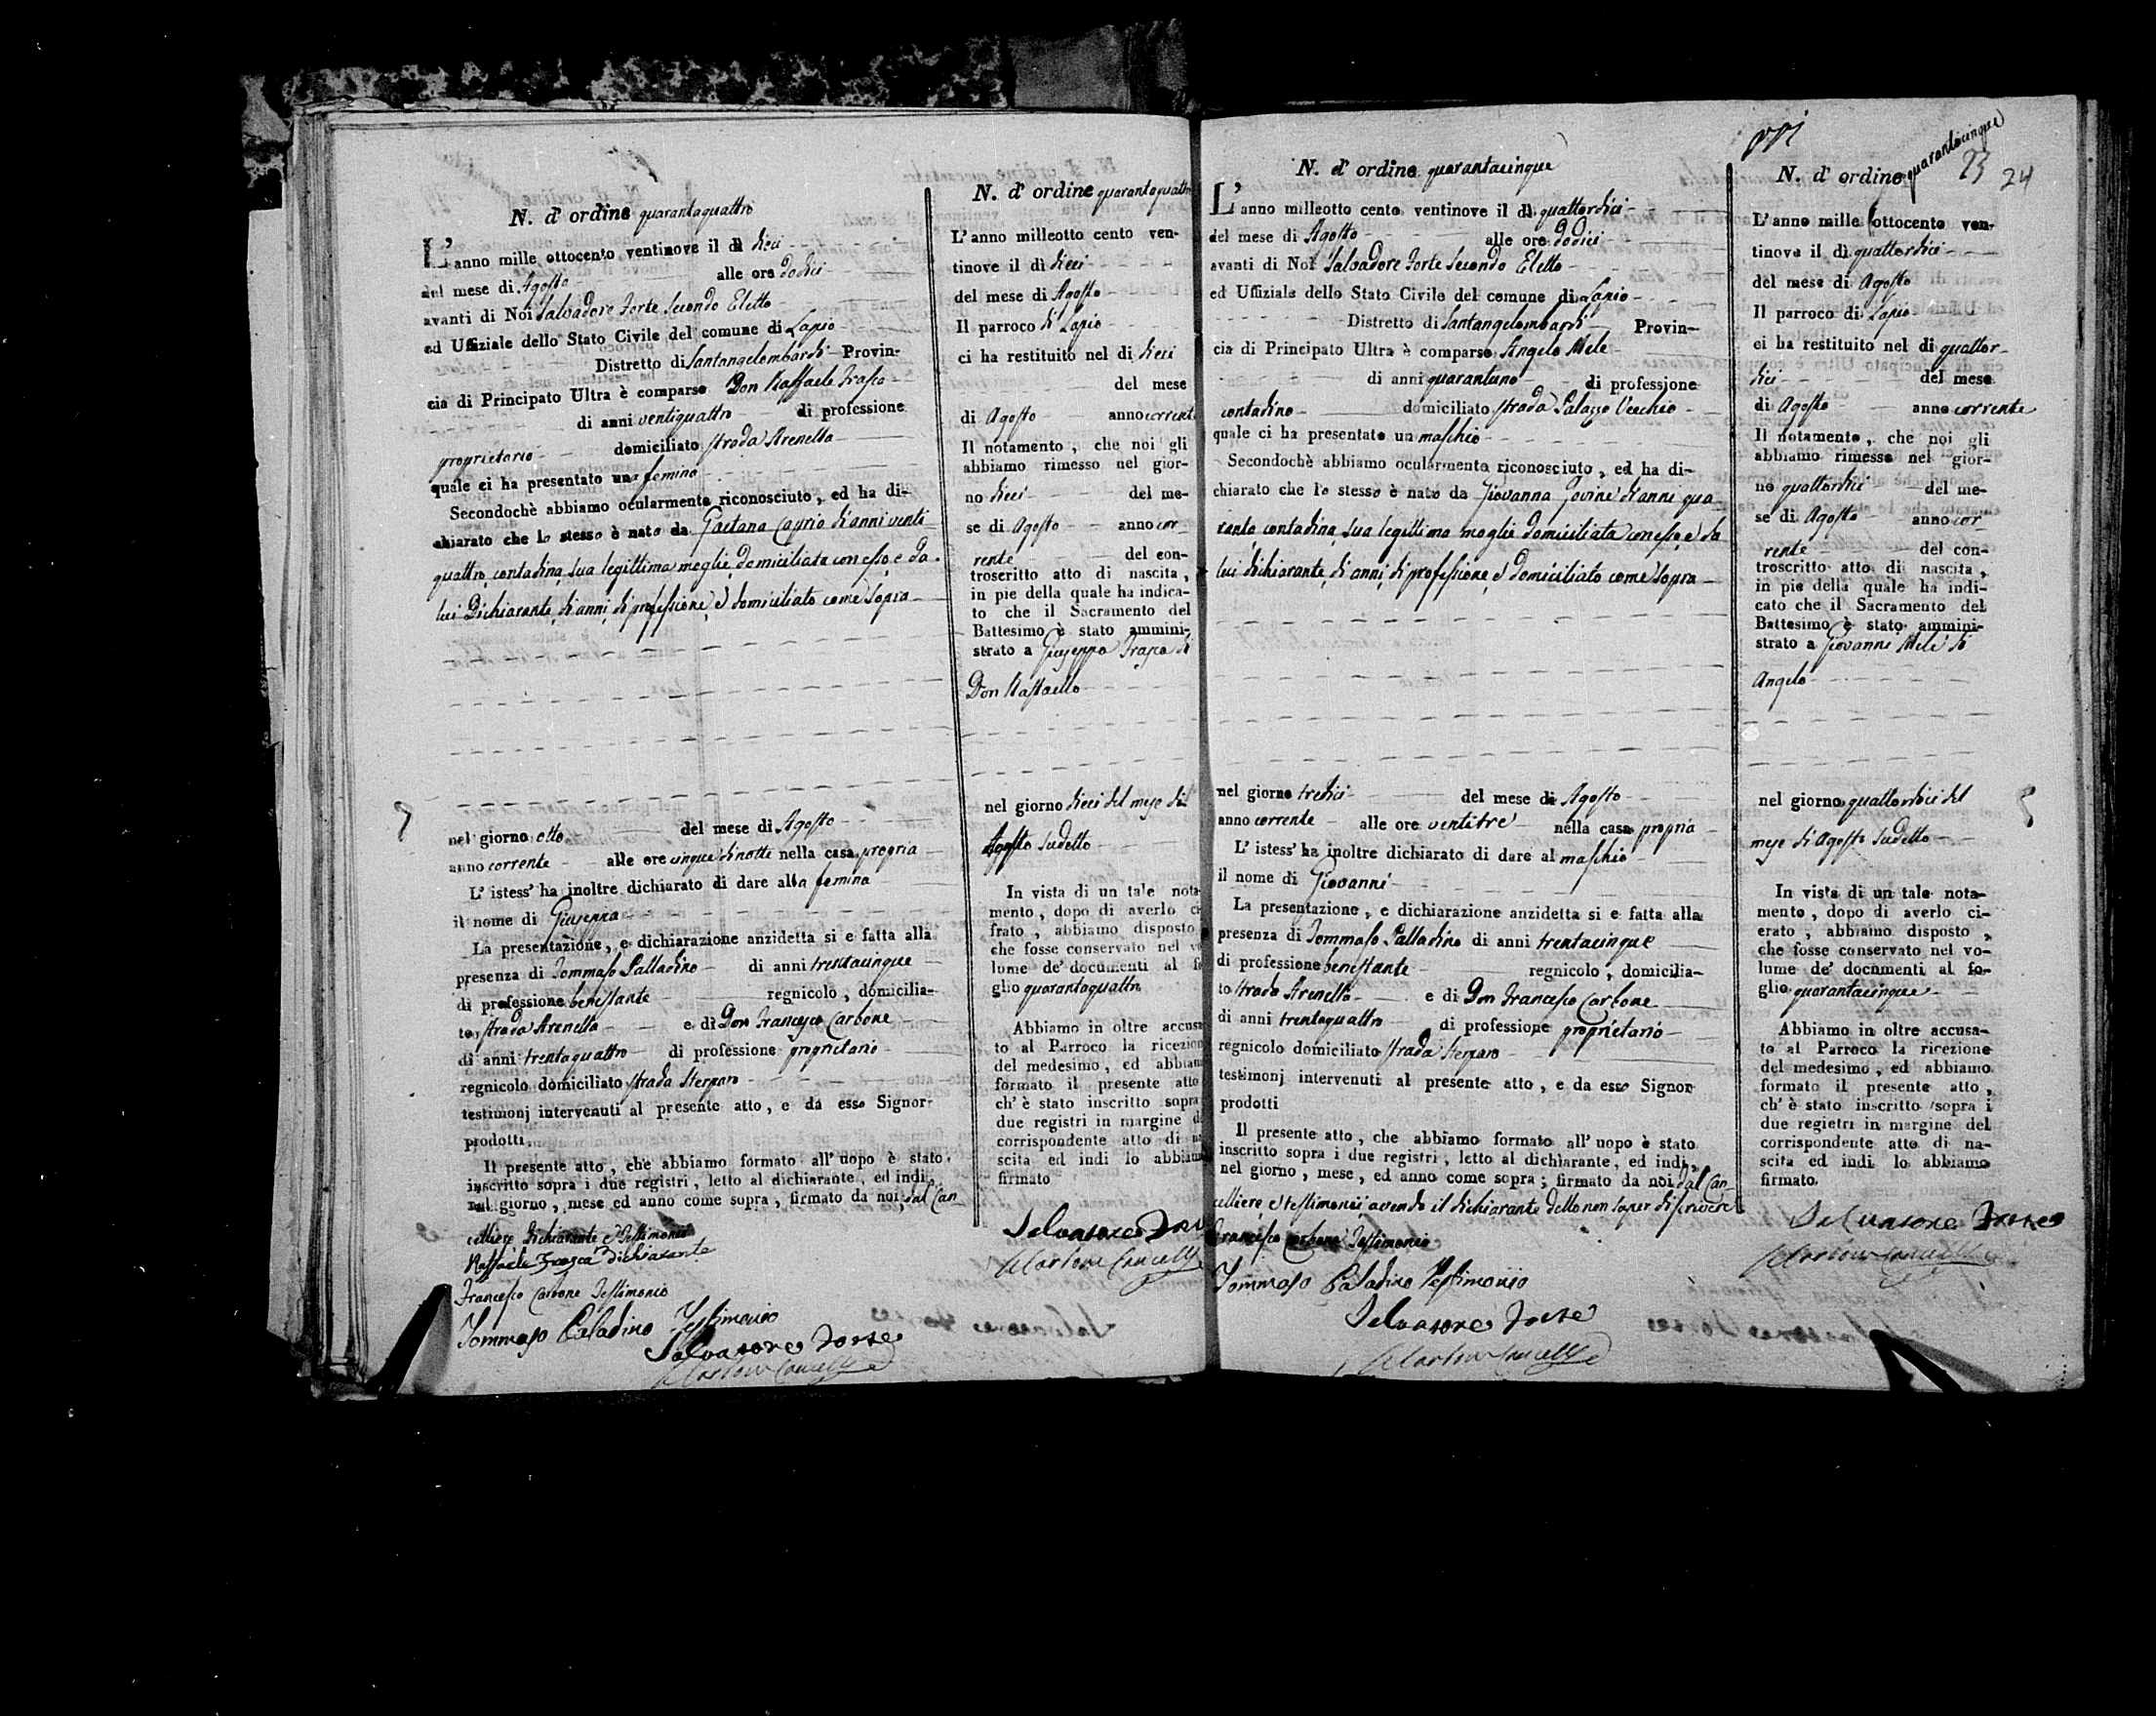 N. d' ordine quarantaquattro
L' anno mille ottocento ventinove il dì dieci
del mese di Agosto alle ore dodici
avanti di Noi Salvadore Forte Secondo Eletto
ed Uffiziale dello Stato Civile del comune di Lapio
Distretto di Santangelombardi Provin-
cia di Principato Ultra è comparso Don Raffaele
di anni ventiquattro di professione
proprietario domiciliato strada Arenella
quale ci ha presentato una femina
Secondochè abbiamo ocularmente riconosciuto, ed ha di-
chiarato che lo stesso è nato da Gaetana di anni venti
quattro, contadina, sua legittima moglie, domiciliata con esso, e da
lui Dichiarante, di anni, di professione, e domiciliato come sopra
nel giorno otto del mese di Agosto
anno corrente alle ore cinque di notte nella casa propria
L' istess' ha inoltre dichiarato di dare alla femina
il nome di Giuseppa
La presentazione, e dichiarazione anzidetta si e fatta alla
presenza di Tommaso Palladino di anni trentacinque
di professione benestante regnicolo, domicilia-
to, strada Arenella e di Don Francesco Carbone
di anni trentaquattro di professione proprietario
regnicolo domiciliato strada Sterparo
testimonj intervenuti al presente atto, e da esso Signor
prodotti.
Il presente atto, che abbiamo formato all' uopo è stato
inscritto sopra i due registri, letto al dichiarante, ed indi,
nel giorno, mese ed anno come sopra, firmato da noi, dal Can
celliere Dichiarante e Testimonii
Raffaele dichiarante
Francesco Carbone Testimonio
Tommaso Paladino Testimonio
Salvatore Forte
N. d' ordine quarantaquattro
L' anno milleotto cento ven-
tinove il dì dieci
del mese di Agosto
Il parroco di Lapio
ci ha restituito nel dì dieci
del mese
di Agosto anno corrente
Il notamento, che noi gli
abbiamo rimesso nel gior-
no dieci del me-
se di Agosto anno cor
rente del con-
troscritto atto di nascita,
in pie della quale ha indica-
to che il Sacramento del
Battesimo è stato ammini-
strato a Giuseppa di
Don Raffaello
nel giorno dieci del mese di
Agosto sudetto
In vista di un tale nota-
mento, dopo di averlo ci
frato, abbiamo disposto
che fosse conservato nel vo
lume de' documenti al fo
glio quarantaquattro
Abbiamo in oltre accusa
to al Parroco la ricezion
del medesimo, ed abbiam
formato il presente atto
ch' è stato inscritto sopra
due registri in margine d
corrispondente atto di na
scita ed indi lo abbiam
firmato
Salvatore Forte
N. d' ordine quarantacinque
L' anno milleotto cento ventinove il dì quattordici
del mese di Agosto alle ore dodici
avanti di Noi Salvadore Forte Secondo Eletto
ed Uffiziale dello Stato Civile del comune di Lapio
Distretto di Santangelombardi Provin-
cia di Principato Ultra è comparso Angelo Mele
di anni quarantuno di professione
contadino domiciliato strada Palazzo Vecchio
quale ci ha presentato un maschio
Secondochè abbiamo ocularmente riconosciuto, ed ha di-
chiarato che lo stesso è nato da Giovanna Iovine di anni qua
ranta contadina, sua legittima moglie domiciliata con esso, e da
lui dichiarante, di anni, di professione, e domiciliato come sopra
nel giorno tredici del mese di Agosto
anno corrente alle ore ventitre nella casa propria
L' istess' ha inoltre dichiarato di dare al maschio
il nome di Giovanni
La presentazione, e dichiarazione anzidetta si e fatta alla
presenza di Tommaso Palladino di anni trentacinque
di professione benestante regnicolo, domicilia-
to strada Arenella e di Don Francesco Carbone
di anni trentaquattro di professione proprietario
regnicolo domiciliato strada Sterparo
testimonj intervenuti al presente atto, e da esso Signor
prodotti
Il presente atto, che abbiamo formato all' uopo è stato
inscritto sopra i due registri, letto al dichiarante, ed indi,
nel giorno, mese, ed anno come sopra; firmato da noi dal Can
celliere, e testimonii, avendo il dichiarante detto non saper di scrivere
Francesco Carbone Testimonio
Tommaso Paladino Testimonio
Salvatore Forte
N. d' ordine quarantacinque
23 24
L' anno mille ottocento ven-
tinove il dì quattordici
del mese di Agosto
Il parroco di Lapio
ci ha restituito nel dì quattor
dici del mese
di Agosto anno corrente
Il notamento, che noi gli
abbiamo rimesso nel gior-
no quattordici del me-
se di Agosto anno cor
rente del con-
troscritto atto di nascita,
in pie della quale ha indi-
cato che il Sacramento del
Battesimo è stato ammini-
strato a Giovanni Mele di
Angelo
nel giorno quattordici del
mese di Agosto sudetto
In vista di un tale nota-
mento, dopo di averlo ci-
erato, abbiamo disposto,
che fosse conservato nel vo-
lume de' documenti al fo-
glio quarantacinque
Abbiamo in oltre accusa-
to al Parroco la ricezione
del medesimo, ed abbiamo
formato il presente atto,
ch' è stato inscritto sopra i
due registri in margine del
corrispondente atto di na-
scita ed indi lo abbiamo
firmato.
Salvatore Forte